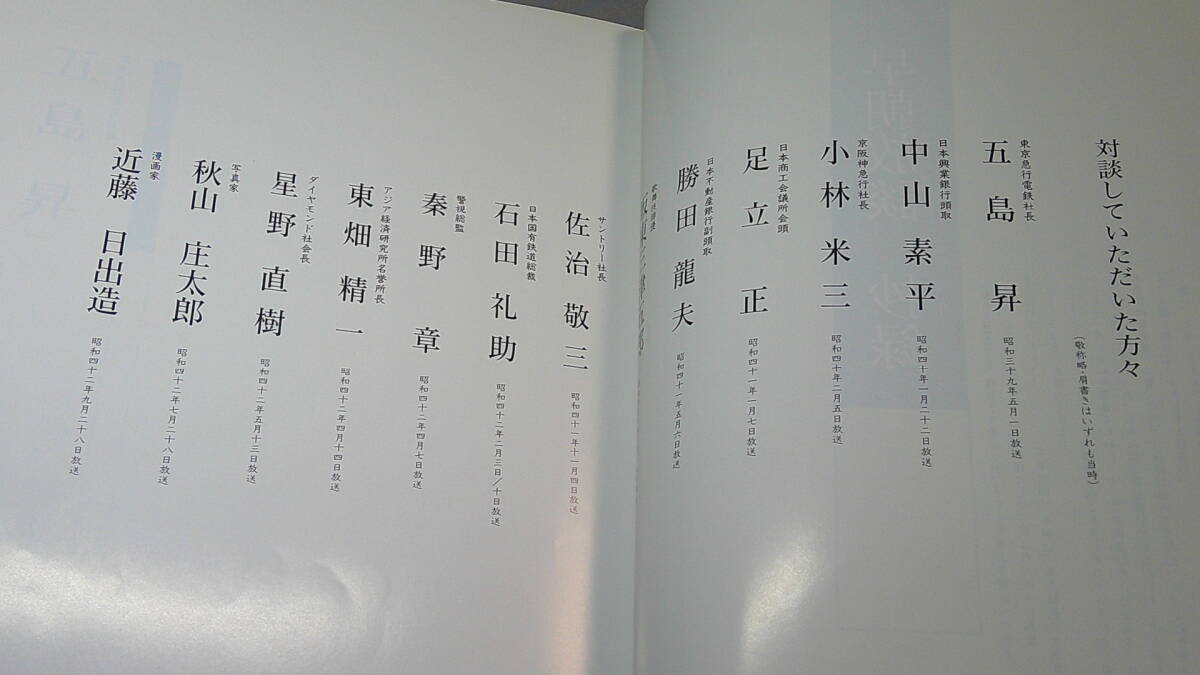 対談していただいた方々
(敬称略・肩書きはいずれも当時)
東京急行電鉄社長
五島 昇
昭和三十九年五月一日放送
日本興業銀行頭取
中山 素平
昭和四十年一月二十二日放送
京阪神急行社長
小林 米三
昭和四十年二月五日放送
日本商工会議所会頭
足立 正
昭和四十一年一月七日放送
日本不動産銀行副頭取
勝田 龍夫
昭和四十一年五月六日放送
サントリー社長
佐治 敬三
昭和四十一年十一月四日放送
日本国有鉄道総裁
石田 礼助
昭和四十二年二月三日/十日放送
警視総監
秦野 章
昭和四十二年四月七日放送
アジア経済研究所名誉所長
東畑 精一
昭和四十二年四月十四日放送
ダイヤモンド社会長
星野 直樹
昭和四十二年五月十三日放送
写真家
秋山 庄太郎
昭和四十二年七月二十八日放送
漫画家
近藤 日出造
昭和四十二年九月二十八日放送
五島 昇